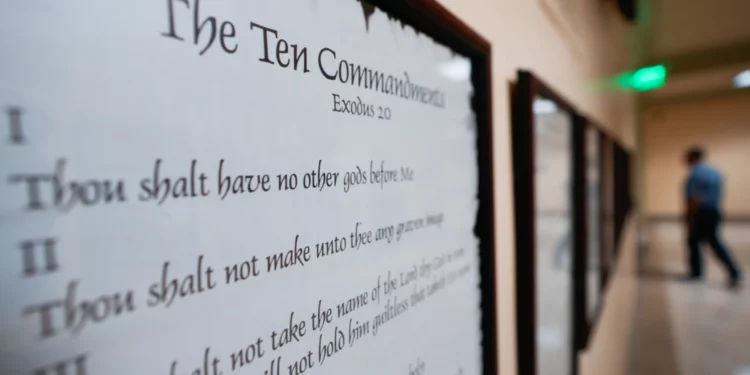 The Ten Commandments
Exodus 20
I
Thou shalt have no other gods before Me
II
Thou shalt not make unto thee any graven image
III
shalt not take the name of the Lord thy God
will not hold him guiltless that